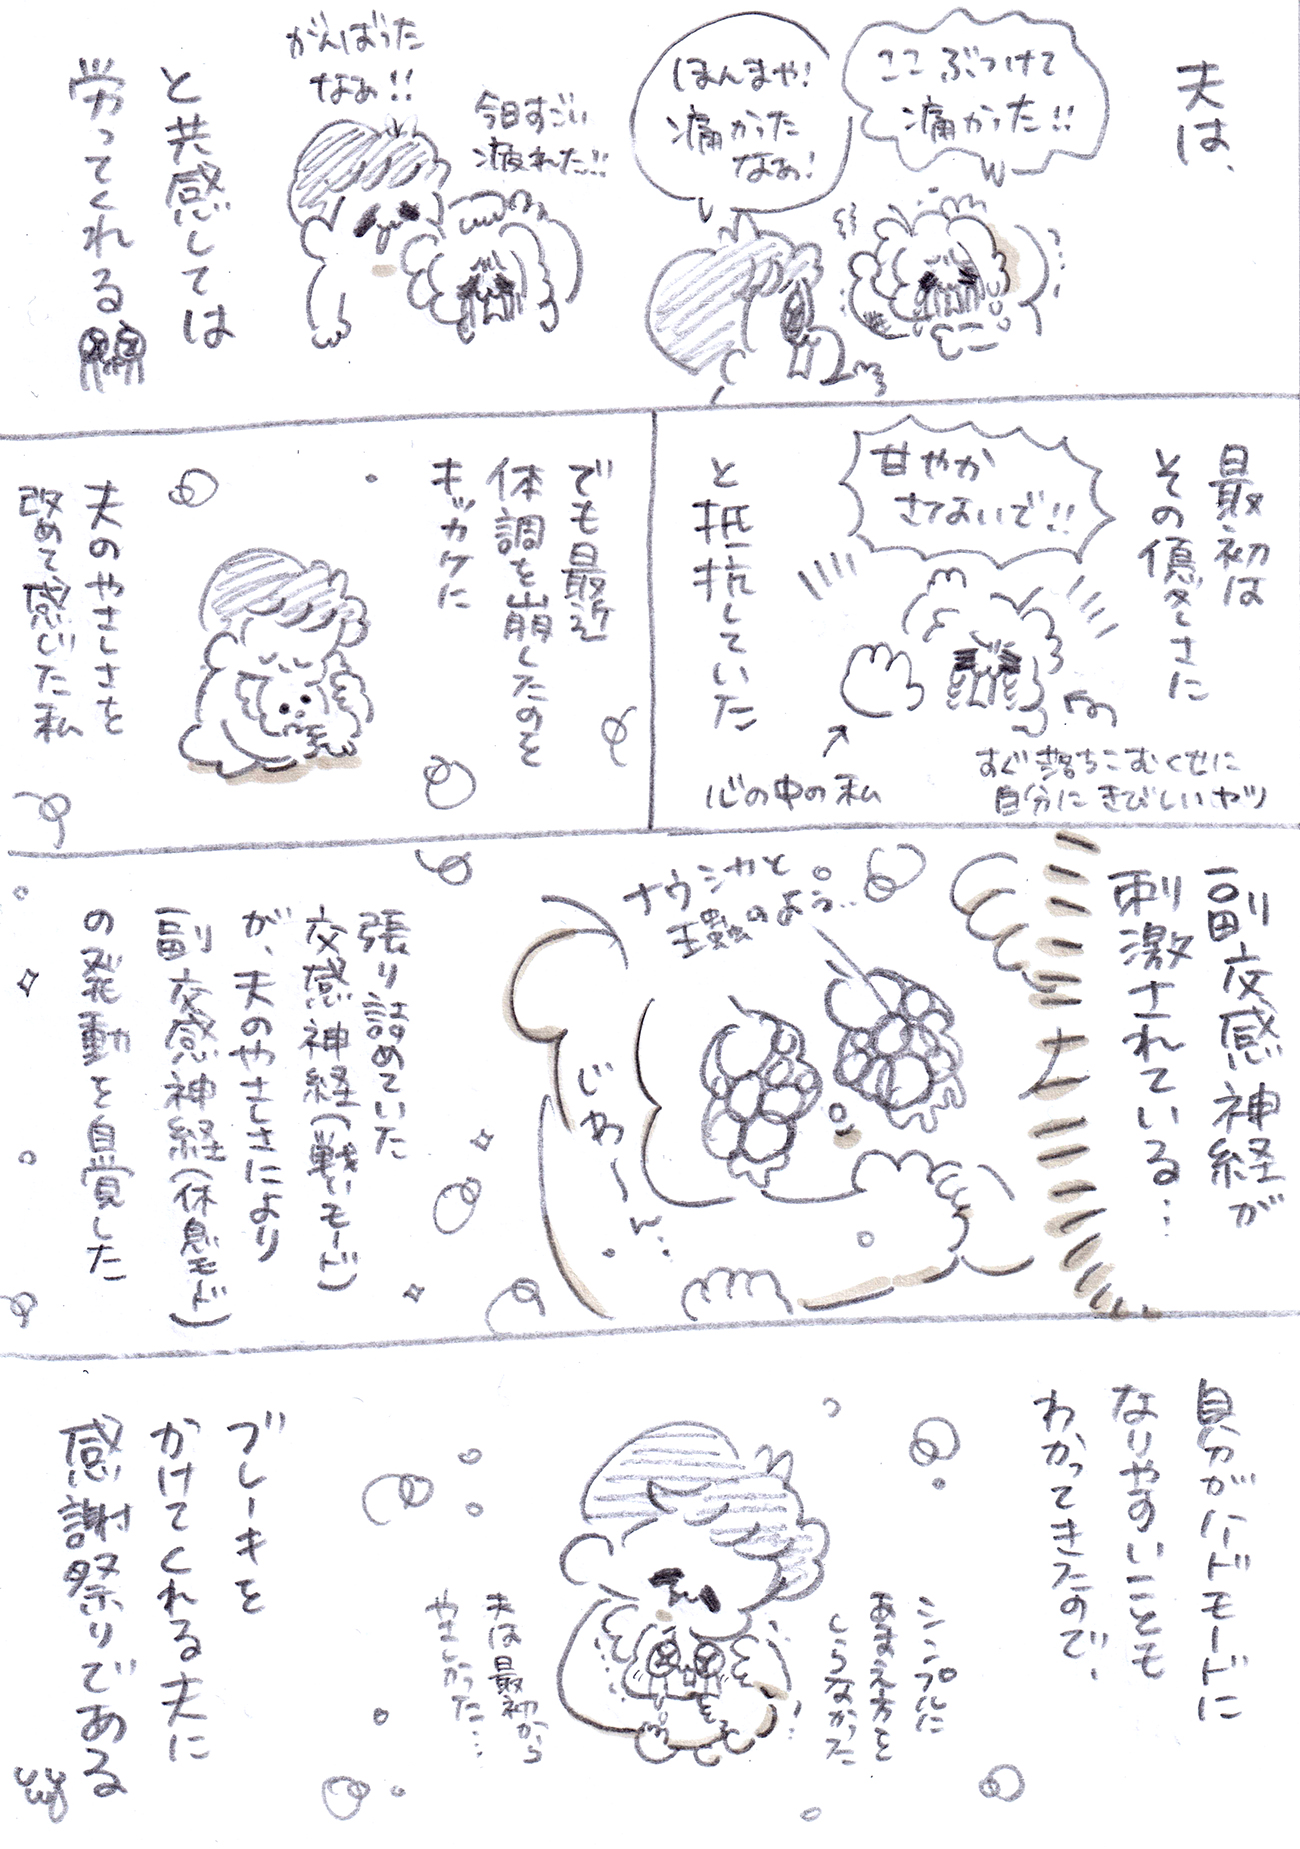 夫は、
ここぶつけて
痛かった!!
ほんまや!
痛かった
なぁ!
今日すごい
疲れた!!
がんばった
なぁ!!
と共感しては
労ってくれる
最初は
その優しさに
甘やか
さないで!!
すぐ落ちこむくせに
自分にきびしいヤツ
心の中の私
と抵抗していた
でも最近
体調を崩したのを
キッカケに
夫のやさしさを
改めて感じた私
副交感神経が
刺激されている…
ナウシカと
王蟲のよう…
じわ〜ん…
張り詰めていた
交感神経(戦いモード)
が、夫のやさしさにより
副交感神経(休息モード)
の発動を自覚した
自分がハードモードに
なりやすいことも
わかってきたので、
シンプルに
甘え方を
しらなかった
夫は最初から
やさしかった…
ブレーキを
かけてくれる夫に
感謝祭りである